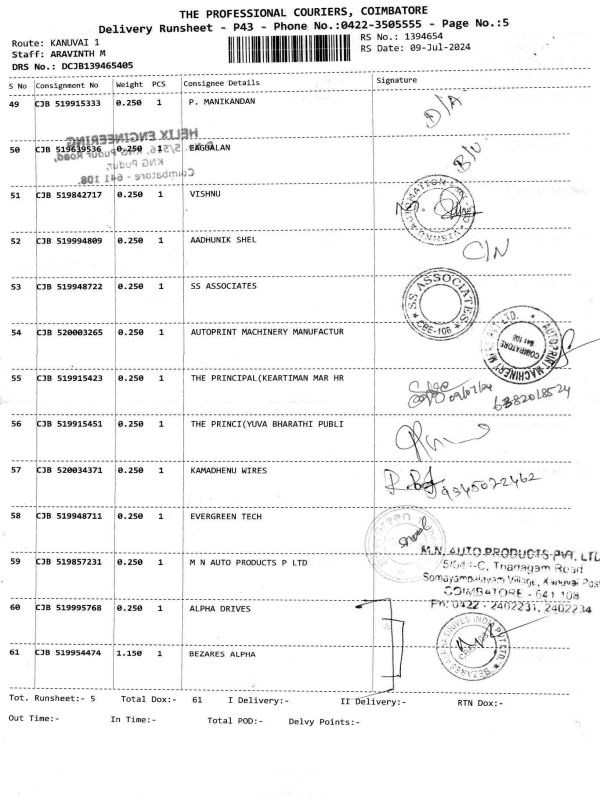 THE PROFESSIONAL COURIERS, COIMBATORE
Delivery Runsheet - P43 - Phone No.:0422-3505555 - Page No.:5
Route: KANUVAI 1
RS No.: 1394654
Staff: ARAVINTH M
RS Date: 09-Jul-2024
DRS No.: DCJB139465405
S No Consignment No Weight PCS Consignee Details Signature
49 CJB 519915333 0.250 1 P. MANIKANDAN D/A
HELIX ENGINEERING
50 CJB 519639536 0.250 1 EAGUALAN B/U
KNG Pudur,
Coimbatore - 641 108.
51 CJB 519842717 0.250 1 VISHNU
52 CJB 519994809 0.250 1 AADHUNIK SHEL C/N
53 CJB 519948722 0.250 1 SS ASSOCIATES
SS ASSOCIATES
CBE-108
54 CJB 520003265 0.250 1 AUTOPRINT MACHINERY MANUFACTUR
COIMBATORE
641 108
55 CJB 519915423 0.250 1 THE PRINCIPAL(KEARTIMAN MAR HR 09/07/24
6382018524
56 CJB 519915451 0.250 1 THE PRINCI(YUVA BHARATHI PUBLI
57 CJB 520034371 0.250 1 KAMADHENU WIRES 9345022462
58 CJB 519948711 0.250 1 EVERGREEN TECH
M.N. AUTO PRODUCTS PVT. LTD
59 CJB 519857231 0.250 1 M N AUTO PRODUCTS P LTD
Thadagam Road
Somayampalayam Village, Kanuvai Post
COIMBATORE - 641 108
60 CJB 519995768 0.250 1 ALPHA DRIVES
PH: 0422 - 2402231, 2402234
61 CJB 519954474 1.150 1 BEZARES ALPHA
Tot. Runsheet:- 5 Total Dox:- 61 I Delivery:- II Delivery:- RTN Dox:-
Out Time:- In Time:- Total POD:- Delvy Points:-